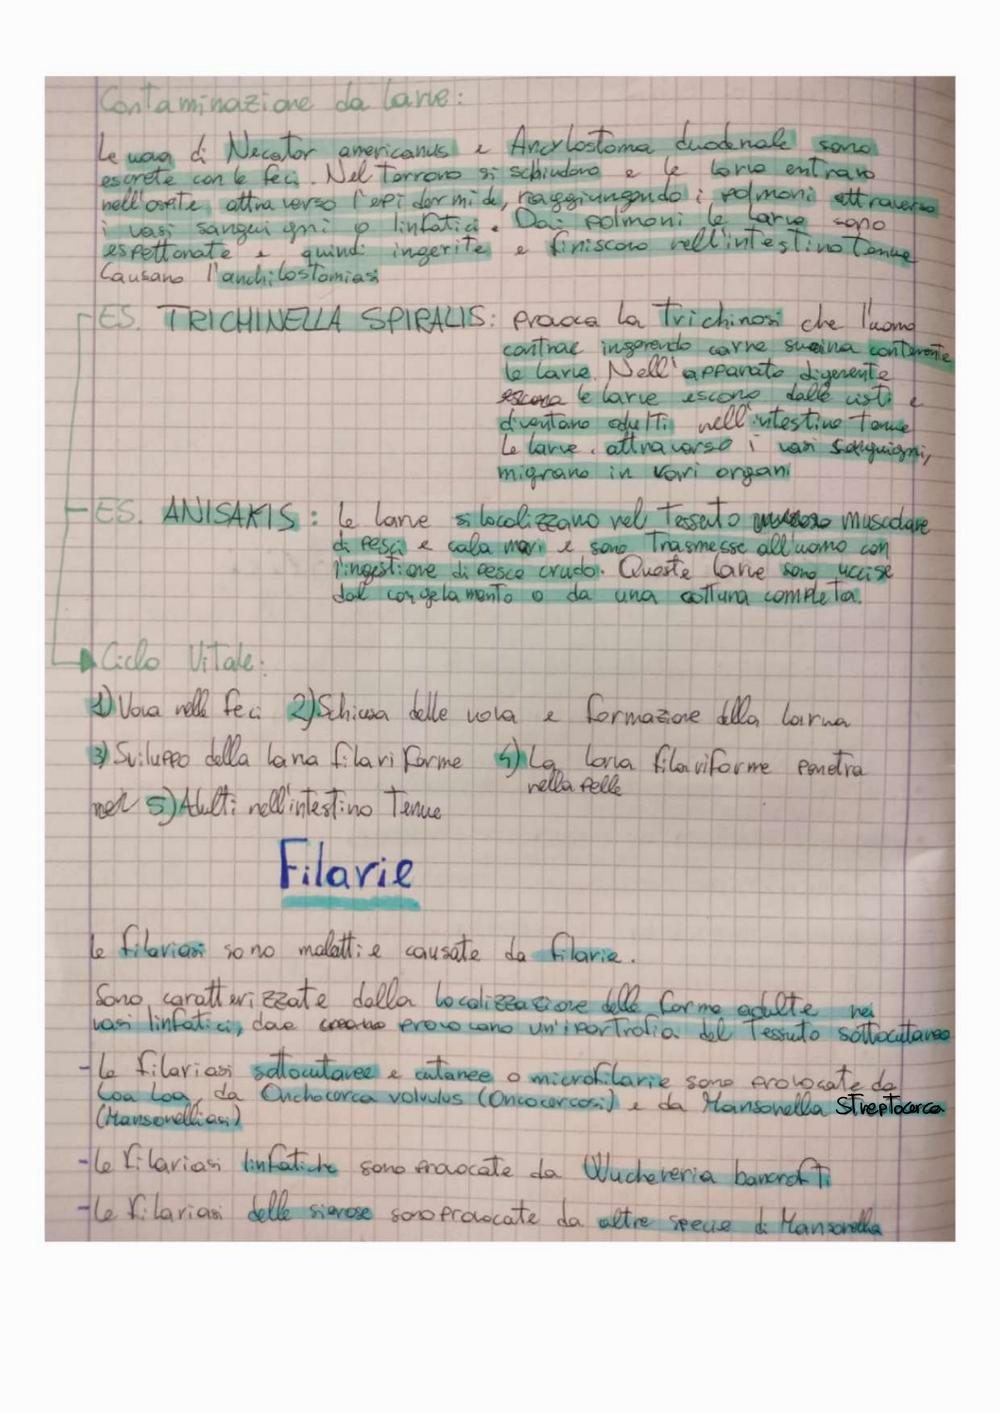 Contaminazione da larve:
Le uova di Necator americanus e Ancylostoma duodenale sono
escrete con le feci. Nel terreno si schiudono e le larve entrano
nell'ospite attraverso l'epidermide, raggiungendo i polmoni attraverso
i vasi sanguigni o linfatici. Dai polmoni le larve sono
espettorate e quindi ingerite e finiscono nell'intestino tenue
Causano l'anchilostomiasi
ES. TRICHINELLA SPIRALIS: provoca la trichinosi che l'uomo
contrae ingerendo carne suina contenente
le larve. Nell'apparato digerente
le larve escono dalle cisti e
diventano adulti nell'intestino tenue
Le larve, attraverso i vasi sanguigni,
migrano in vari organi
ES. ANISAKIS: le larve si localizzano nel tessuto muscolare
di pesci e calamari e sono trasmesse all'uomo con
l'ingestione di pesce crudo. Queste larve sono uccise
dal congelamento o da una cottura completa.
Ciclo Vitale:
1) Uova nelle feci 2) Schiusa delle uova e formazione della larva
3) Sviluppo della larva filariforme 4) La larva filariforme penetra
nella pelle
5) Adulti nell'intestino tenue
Filarie
Le filariasi sono malattie causate da filarie.
Sono caratterizzate dalla localizzazione delle forme adulte nei
vasi linfatici, dove provocano un'ipertrofia del tessuto sottocutaneo
- Le filariasi sottocutanee e cutanee o microfilarie sono provocate da
Loa Loa, da Onchocerca volvulus (Oncocercosi) e da Mansonella Streptocerca
(Mansonelliasi)
- Le filariasi linfatiche sono provocate da Wuchereria bancrofti
- Le filariasi delle sierose sono provocate da altre specie di Mansonella